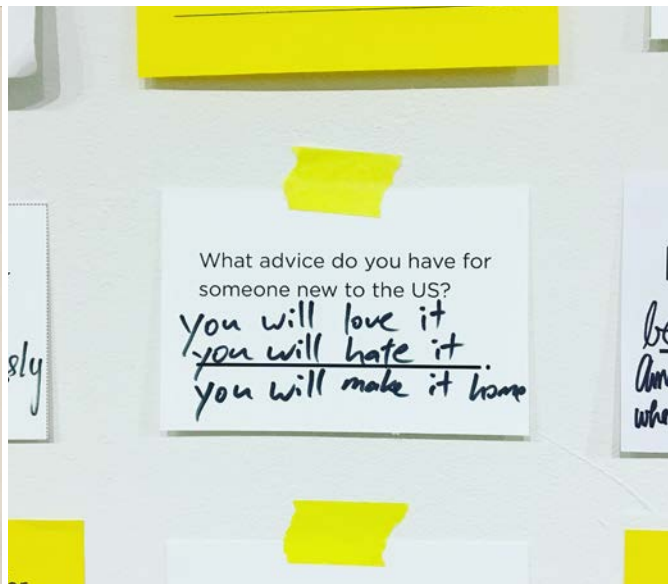 What advice do you have for
someone new to the US?
you will love it
you will hate it
you will make it home
sly